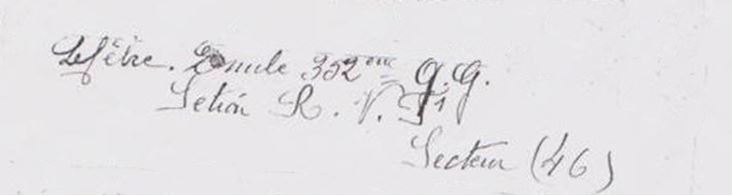 Lefévre. Emule 352eme G. G.
Setion R. V. F
Secteur (46)